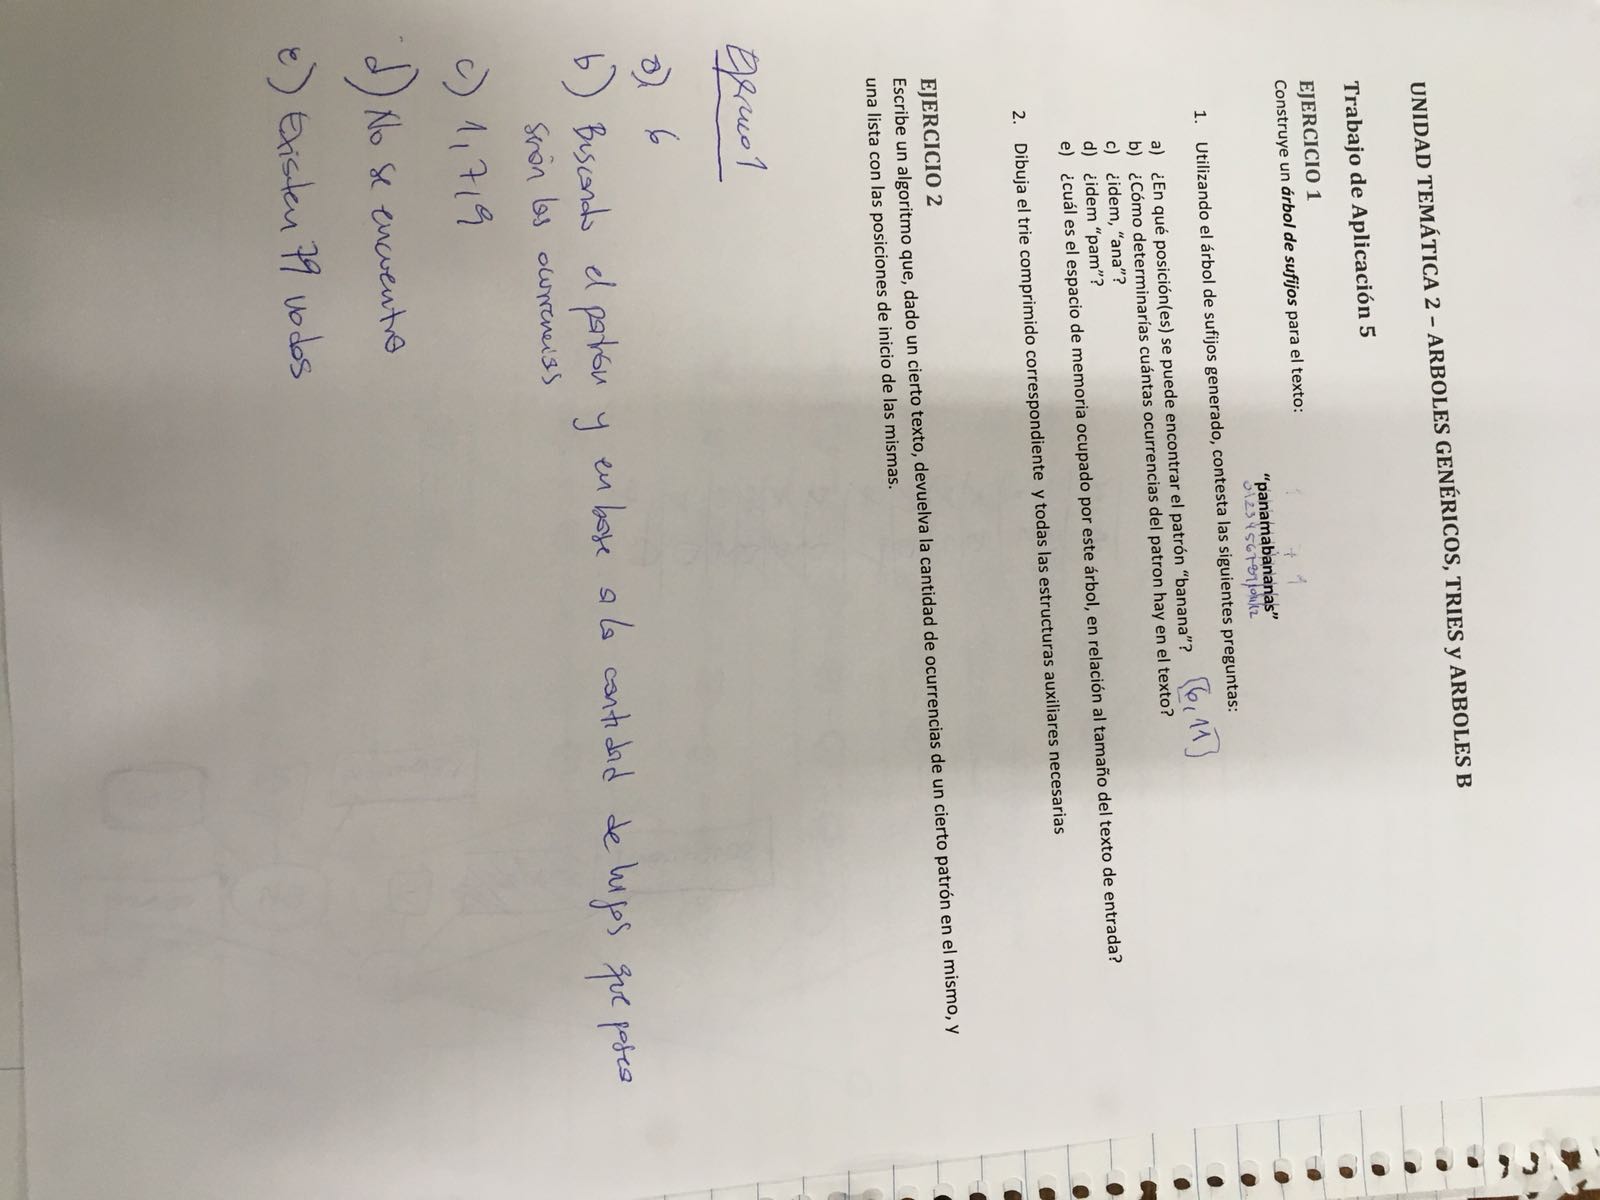 UNIDAD TEMÁTICA 2 – ARBOLES GENÉRICOS, TRIES y ARBOLES B
Trabajo de Aplicación 5
EJERCICIO 1
Construye un árbol de sufijos para el texto:
1 7 9
“panamabananas”
0123456789101112
1. Utilizando el árbol de sufijos generado, contesta las siguientes preguntas:
a) ¿En qué posición(es) se puede encontrar el patrón “banana”? [6, 11]
b) ¿Cómo determinarías cuántas ocurrencias del patron hay en el texto?
c) ¿idem, “ana”?
d) ¿idem “pam”?
e) ¿cuál es el espacio de memoria ocupado por este árbol, en relación al tamaño del texto de entrada?
2. Dibuja el trie comprimido correspondiente y todas las estructuras auxiliares necesarias
EJERCICIO 2
Escribe un algoritmo que, dado un cierto texto, devuelva la cantidad de ocurrencias de un cierto patrón en el mismo, y
una lista con las posiciones de inicio de las mismas.
Ejercicio 1
a) 6
b) Buscando el patrón y en base a la cantidad de hijos que posea
serán las ocurrencias
c) 1, 7, 9
d) No se encuentra
e) Existen 79 nodos